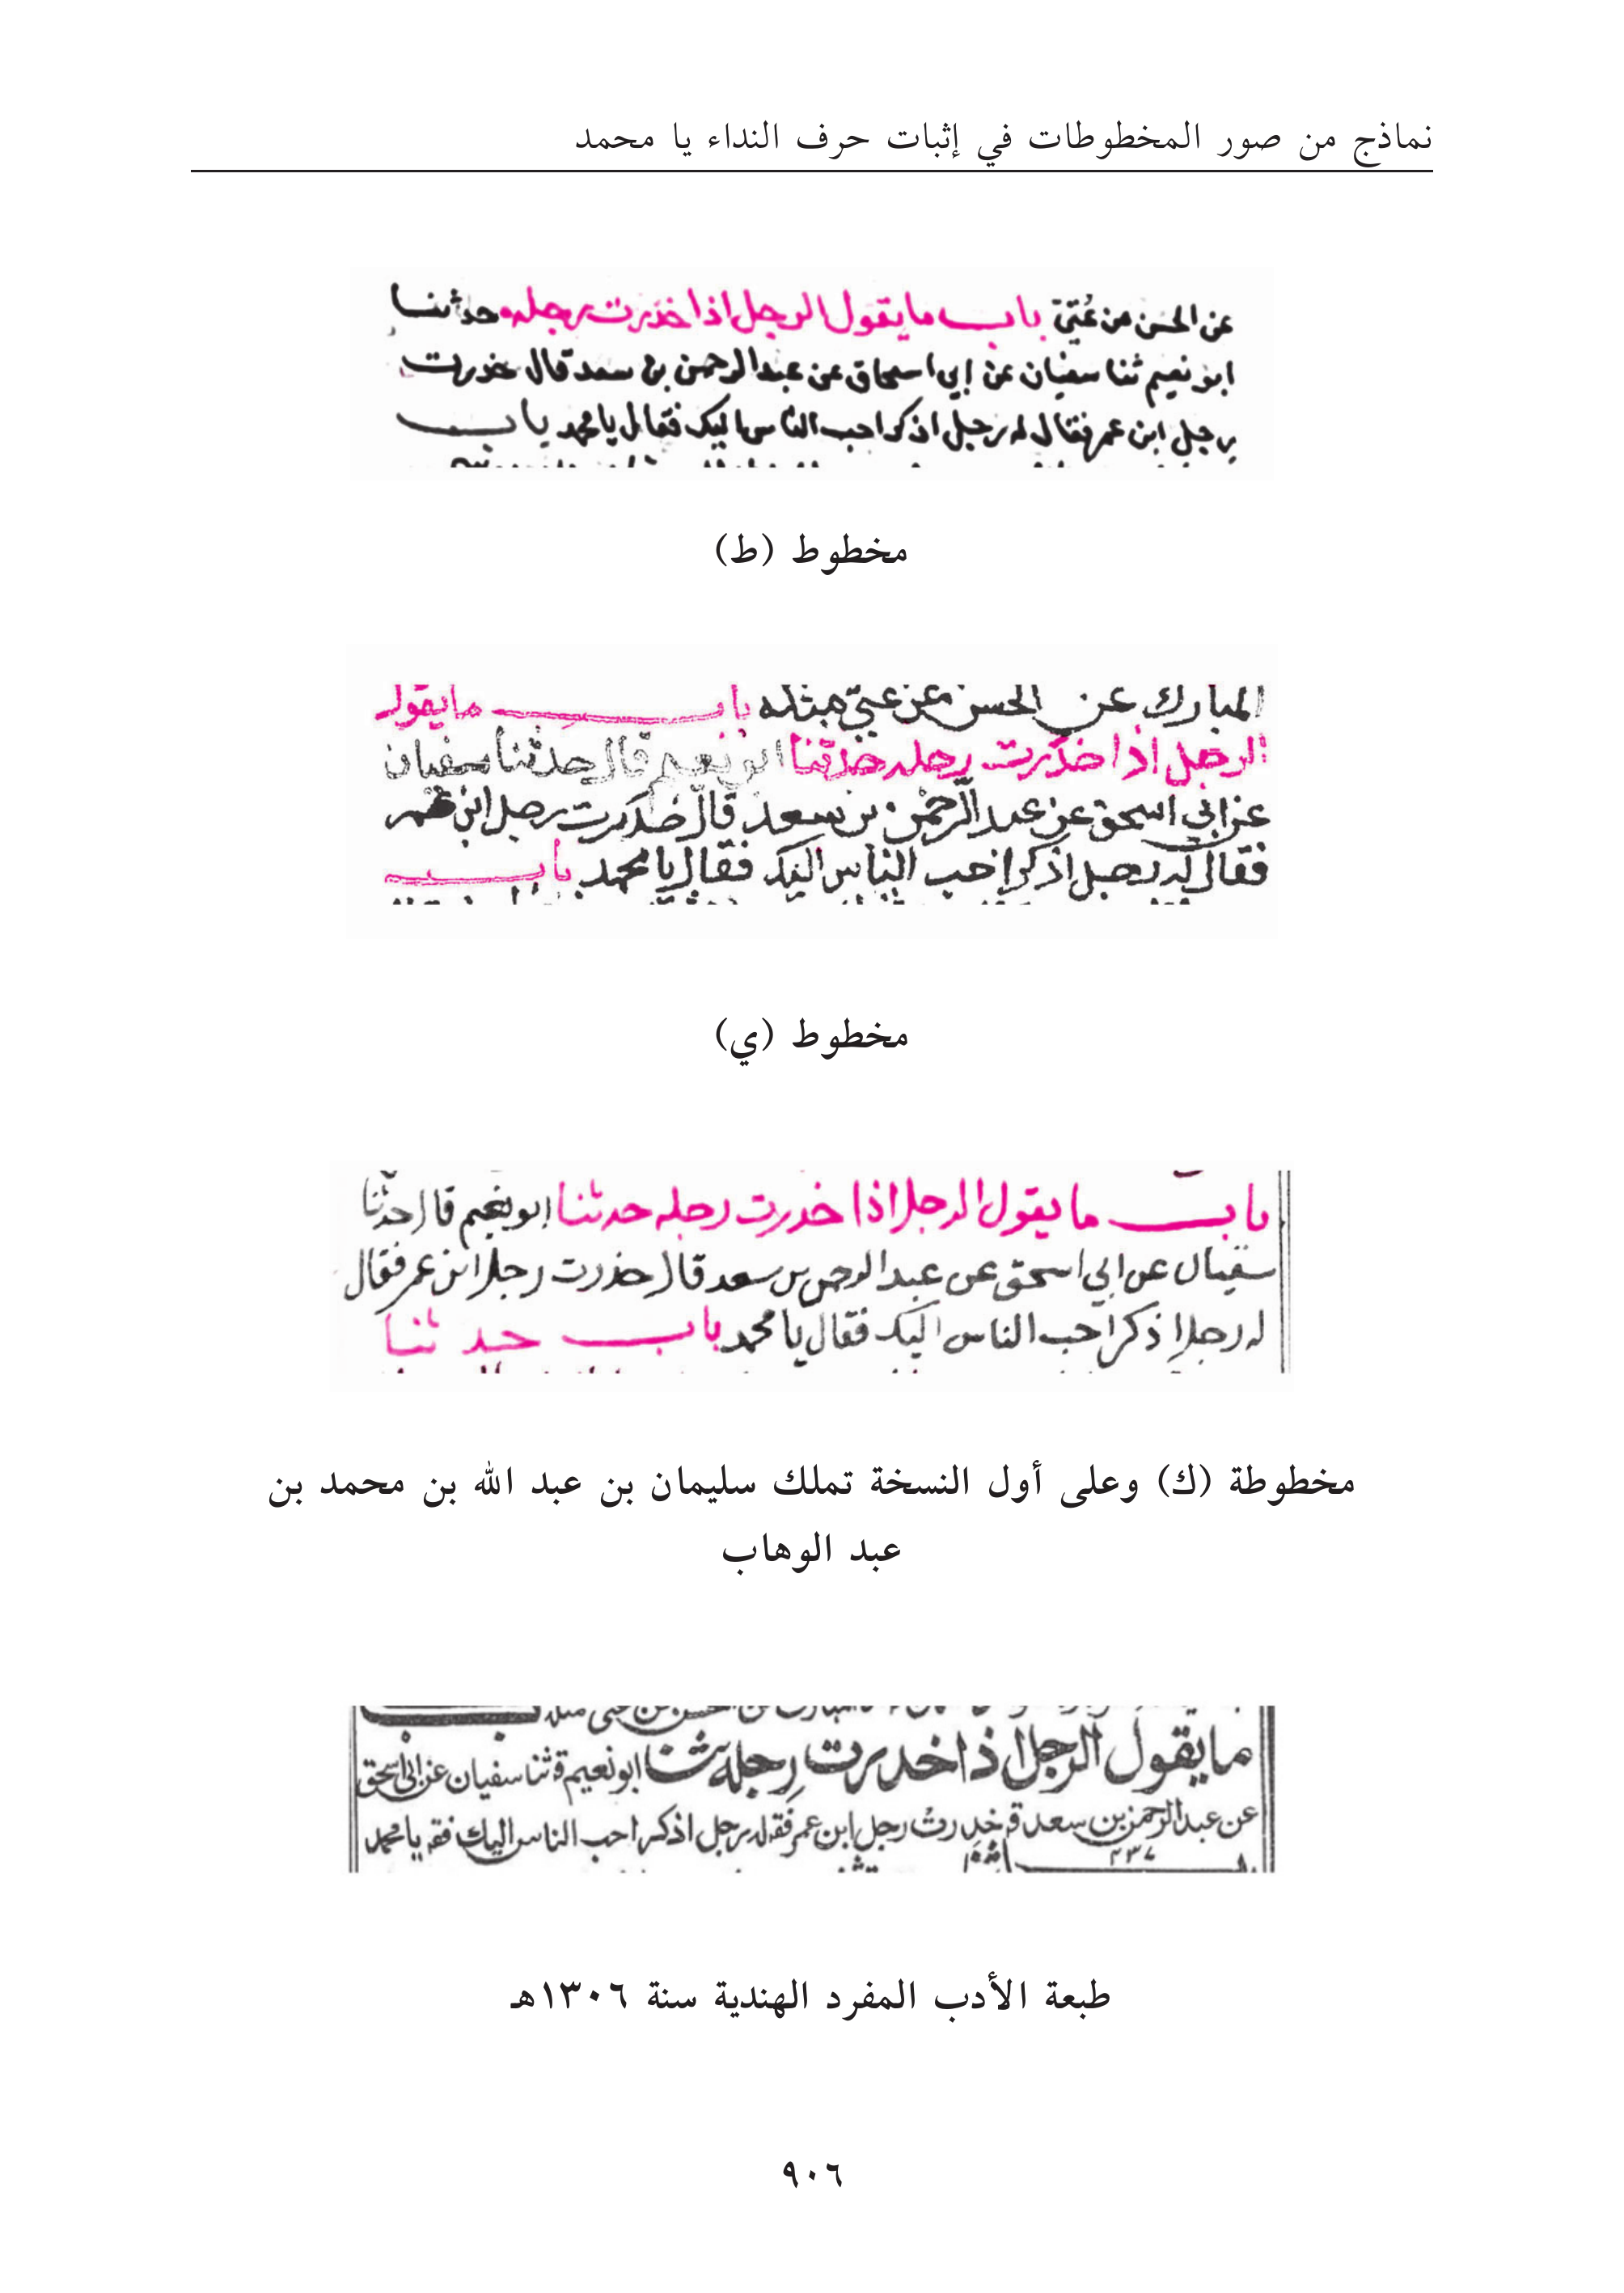 نماذج من صور المخطوطات في إثبات حرف النداء يا محمد
عن الحسن عن عُتيّ باب ما يقول الرجل اذا خدرت رجله حدثنا
ابو نعيم ثنا سفيان عن ابي اسحاق عن عبد الرحمن بن سعد قال خدرت
رجل ابن عمر فقال له رجل اذكر احب الناس اليك فقال يا محمد باب
مخطوط (ط)
المبارك عن الحسن عن عتي مثله باب ما يقول
الرجل اذا خدرت رجله حدثنا ابو نعيم قال حدثنا سفيان
عن ابي اسحق عن عبد الرحمن بن سعد قال خدرت رجل ابن عمر
فقال له رجل اذكر احب الناس اليك فقال يا محمد باب
مخطوط (ي)
باب ما يقول الرجل اذا خدرت رجله حدثنا ابو نعيم قال حدثنا
سفيان عن ابي اسحق عن عبد الرحمن بن سعد قال خدرت رجل ابن عمر فقال
له رجل اذكر احب الناس اليك فقال يا محمد باب حدثنا
مخطوطة (ك) وعلى أول النسخة تملك سليمان بن عبد الله بن محمد بن
عبد الوهاب
ما يقول الرجل اذا خدرت رجله ثنا ابو نعيم قثنا سفيان عن ابي اسحق
عن عبد الرحمن بن سعد ق خدرت رجل ابن عمر فقـ له رجل اذكر احب الناس اليك فقـ يا محمد
طبعة الأدب المفرد الهندية سنة ١٣٠٦هـ
٩٠٦